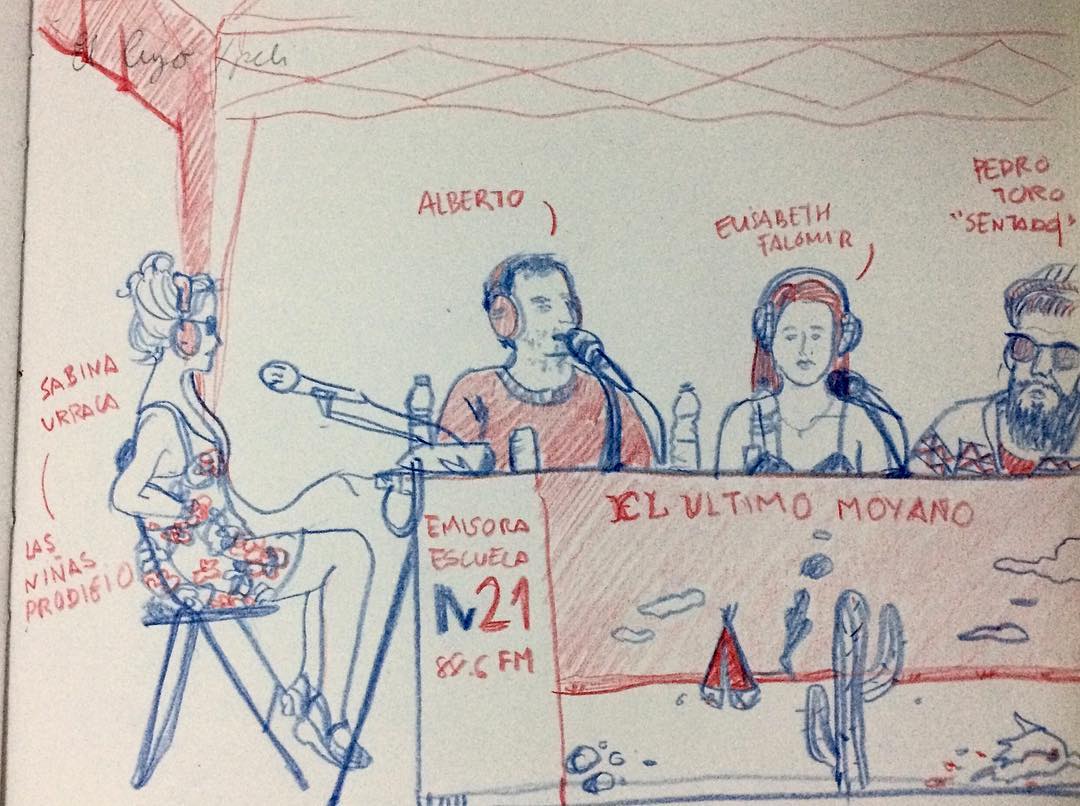 ALBERTO
ELISABETH
FALOMIR
PEDRO
TORO
"SENTADO"
SABINA
URRACA
LAS
NIÑAS
PRODIGIO
EMISORA
ESCUELA
M21
88.6 FM
EL ULTIMO MOYANO